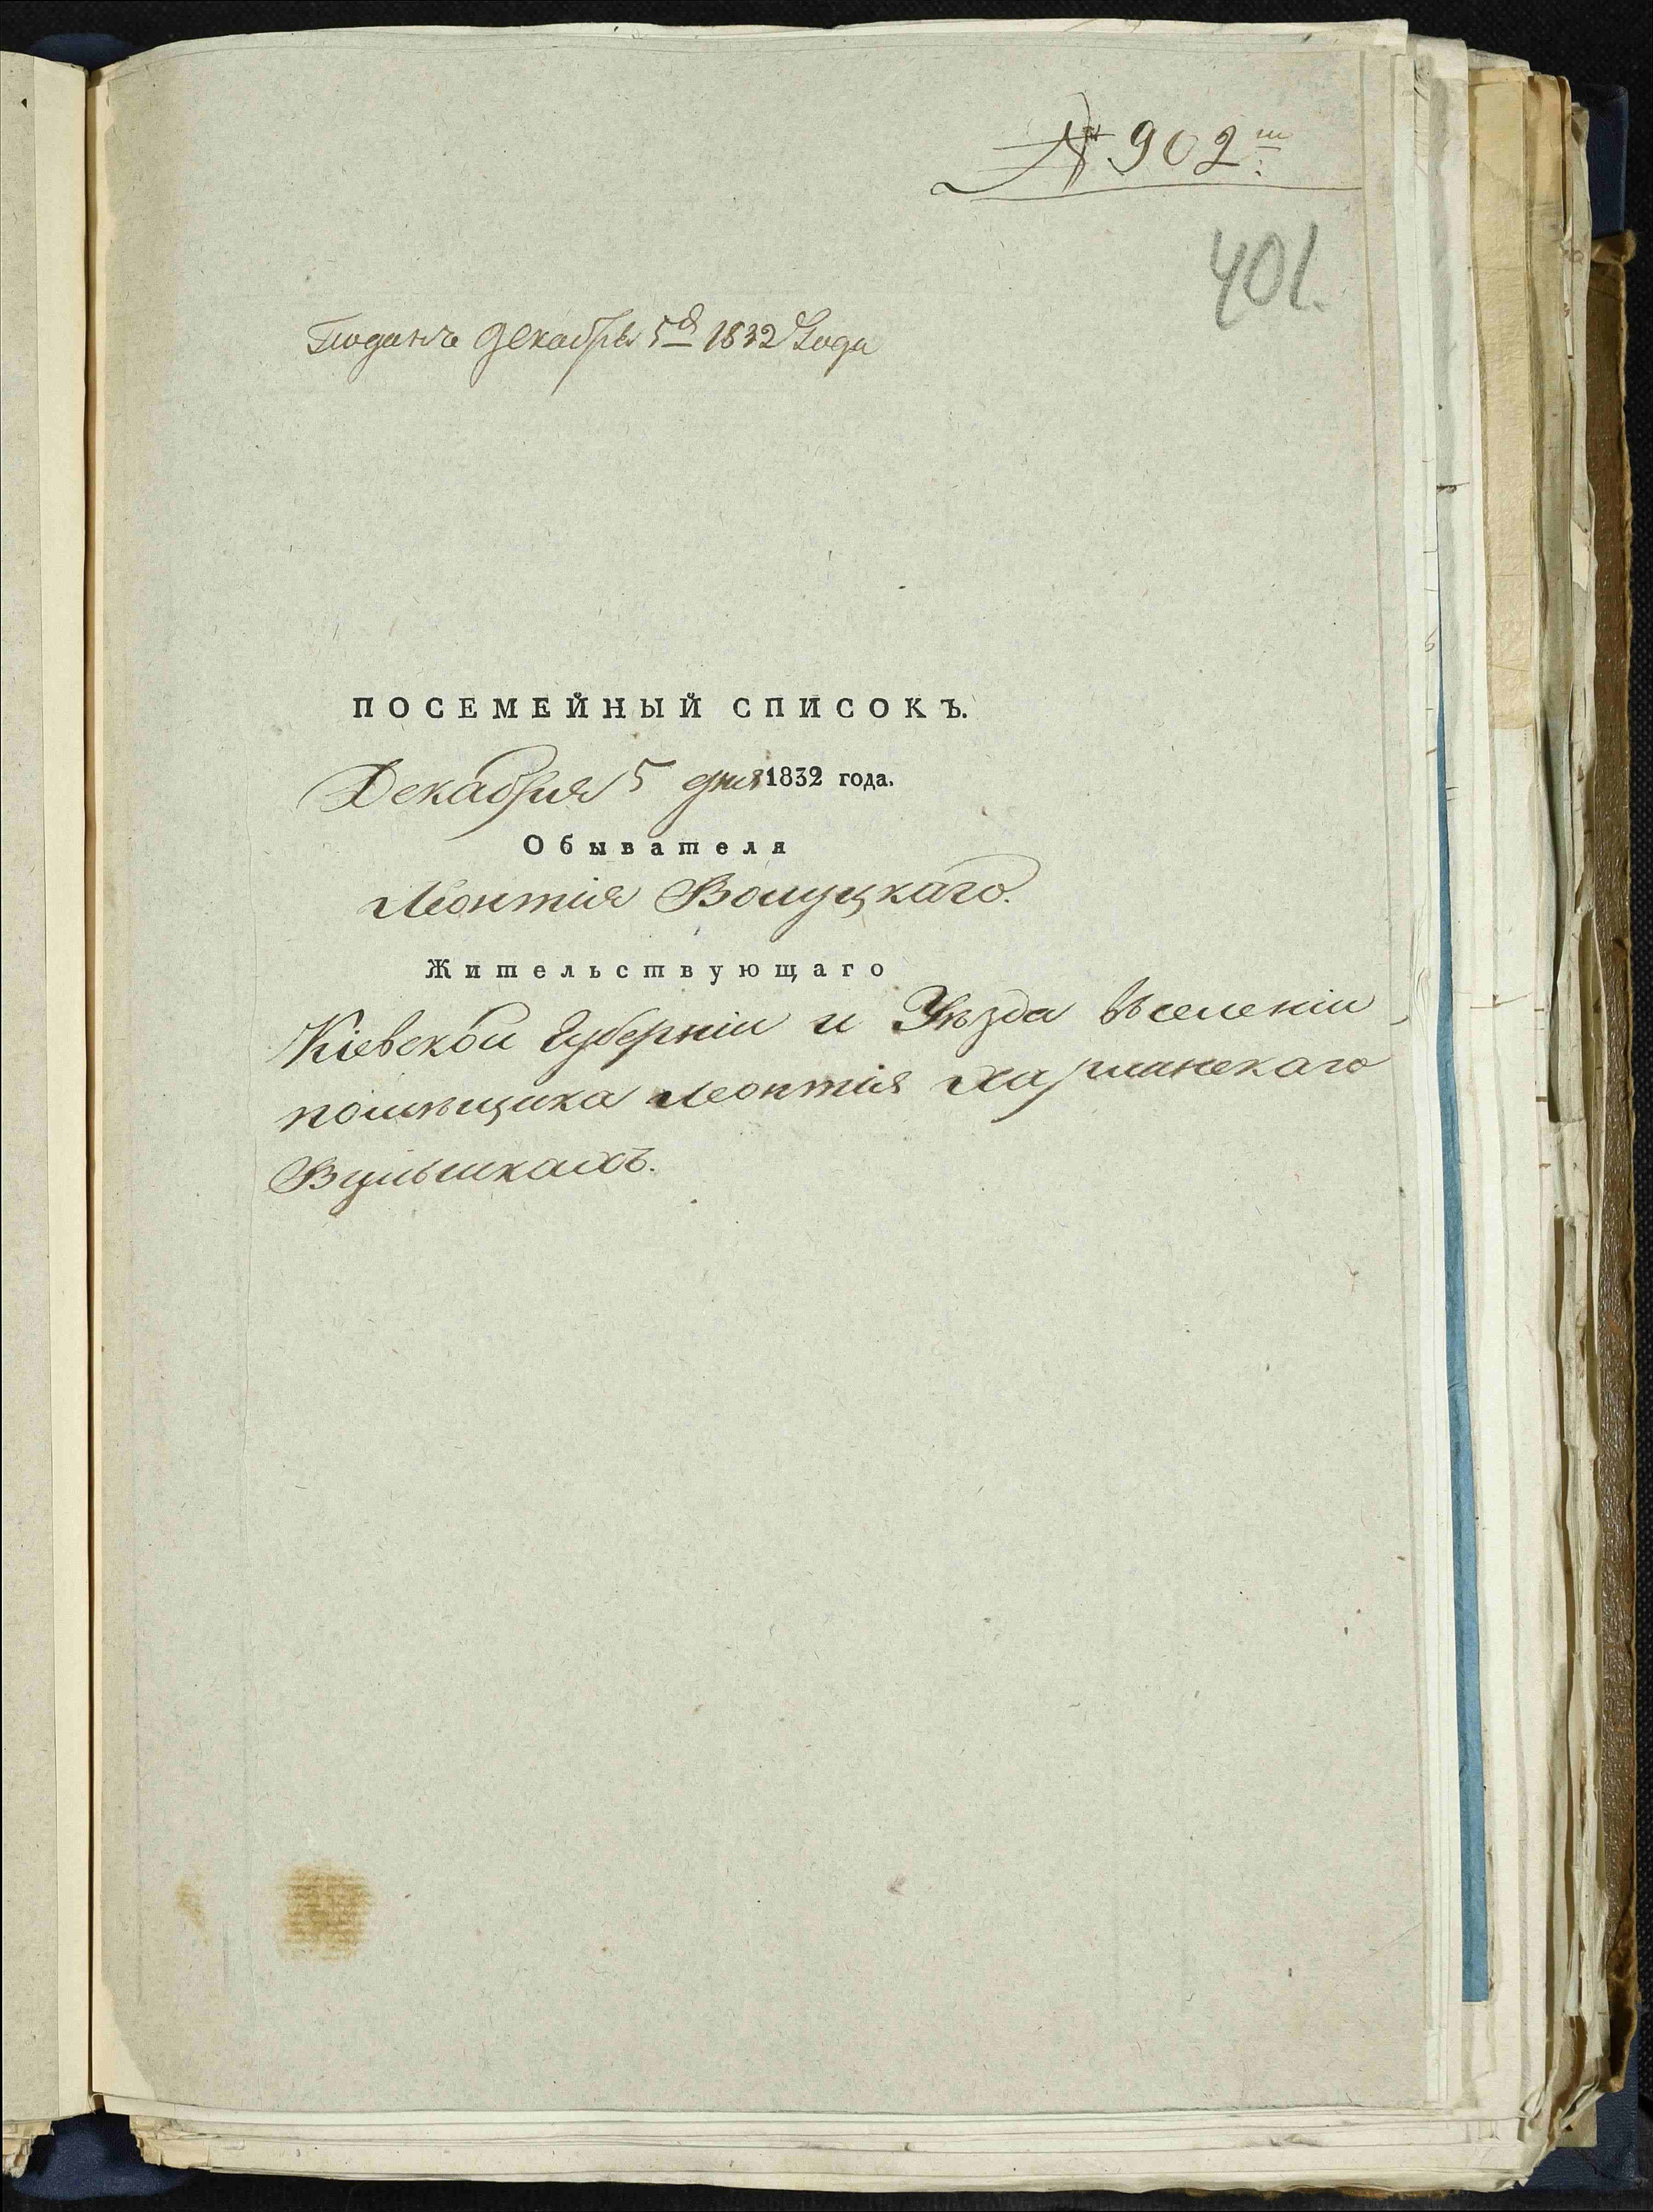 № 902й
401.
Поданъ декабря 5го 1832 Года
ПОСЕМЕЙНЫЙ СПИСОКЪ.
Декабря 5 дня 1832 года.
Обывателя
Леонтія Вощуцкаго.
Жительствующаго
Кіевской Губерніи и Уѣзда Вселеніи
помѣщика Леонтія